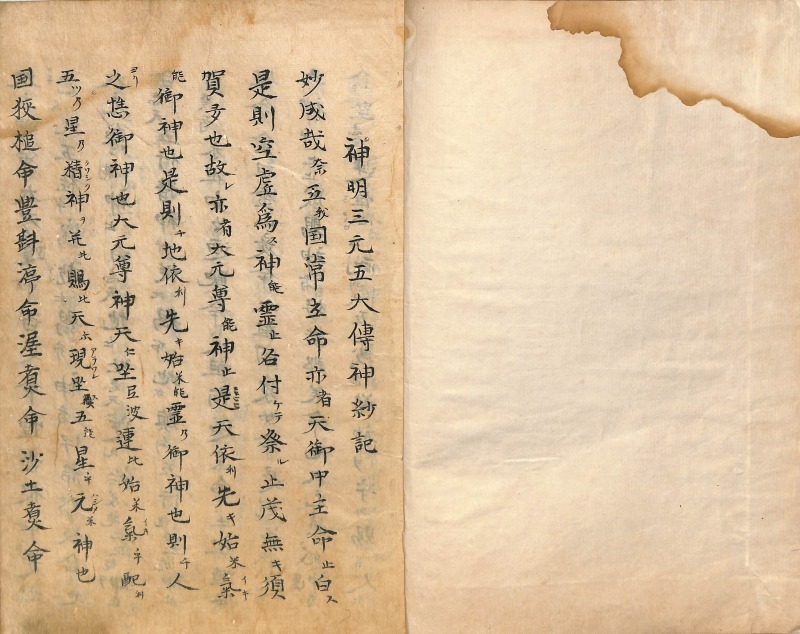 神明三元五大傳神紗記
妙成哉奈吾我国常立命亦者天御中主命止白ス
是則空虚爲ス神能靈止名付ケテ祭ル止茂無キ須
賀多也故レ亦者大元尊能神止是天依利先キ始米氣イキ
能御神也是則チ地依利先キ始米能靈乃御神也則チ人
之ヨリ御神也大元尊神天仁坐豆波連比始米氣イキ乎配利
五ツ乃星乃精神ヲ比賜比天現アラワレ坐五能星乎元神也
国狭槌命豊斟渟命渥煑命沙土煑命